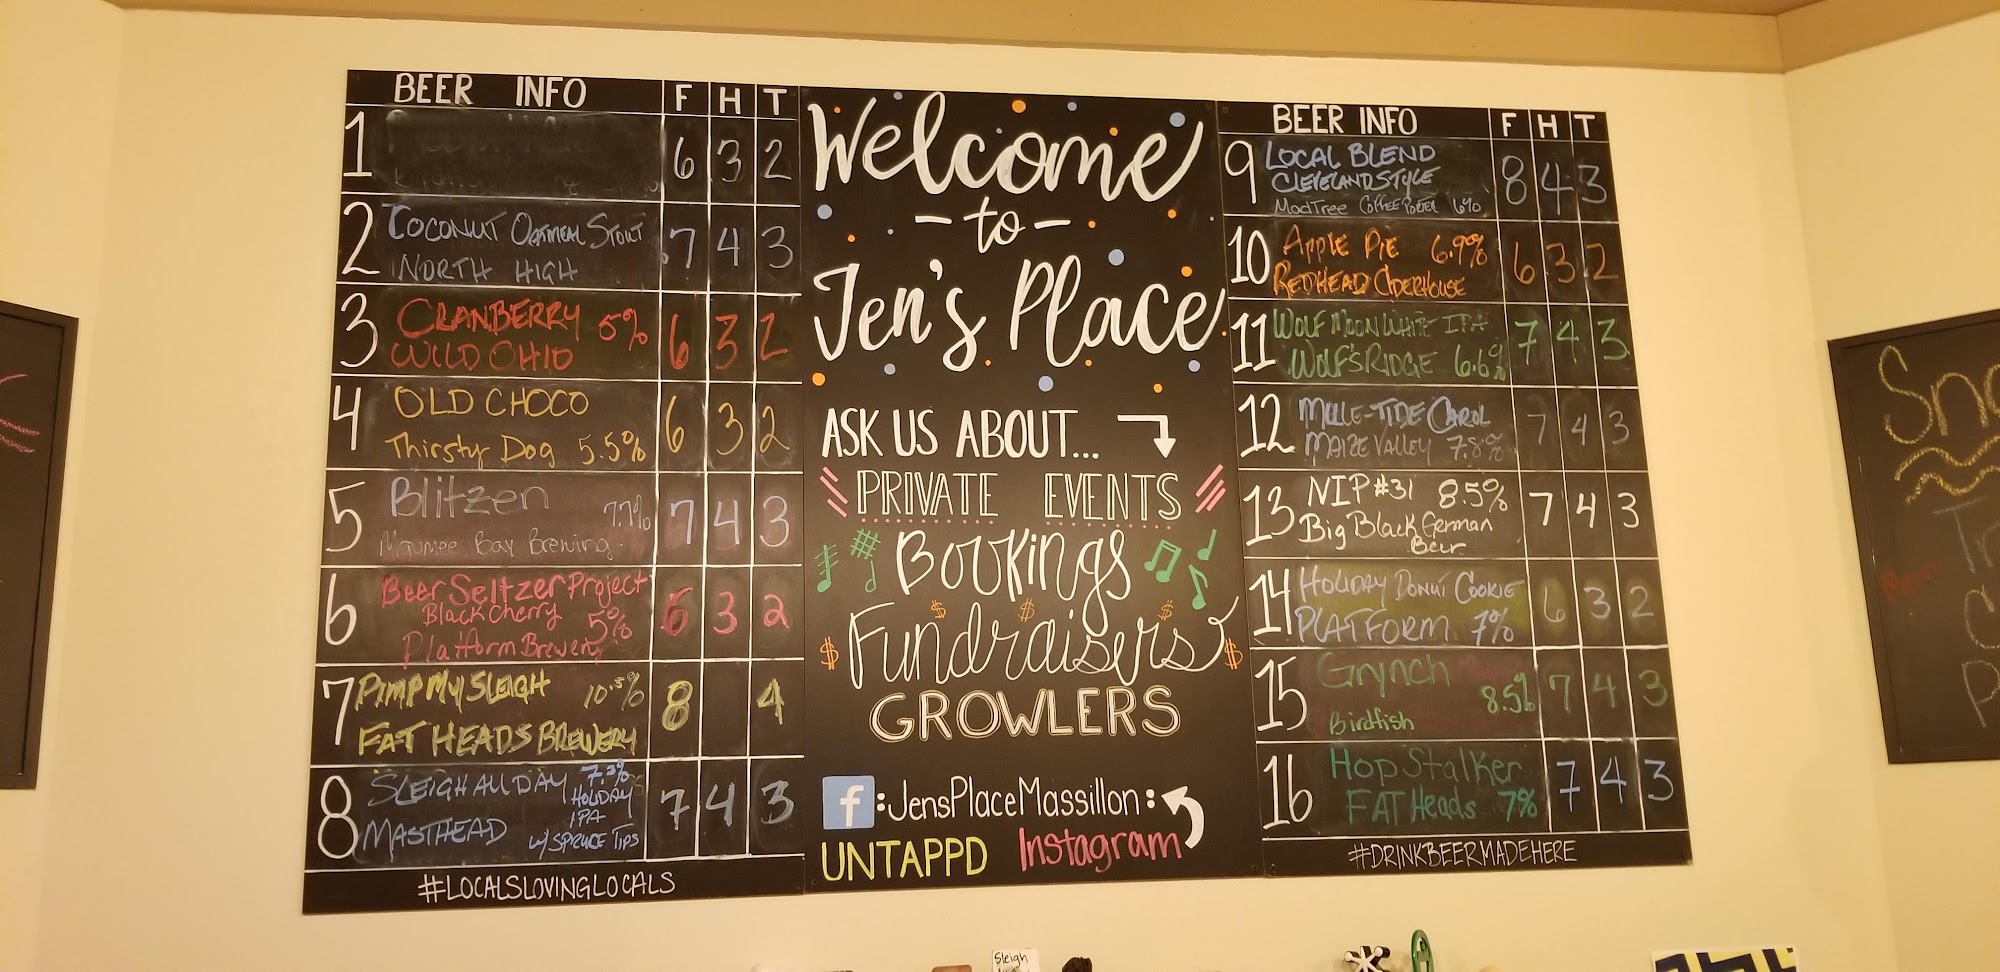 BEER INFO F H T
1 6 3 2
2 COCONUT OATMEAL STOUT 7 4 3
NORTH HIGH
3 CRANBERRY 5% 6 3 2
WILD OHIO
4 OLD CHOCO 6 3 2
Thirsty Dog 5.5%
5 Blitzen 7.7% 7 4 3
Maumee Bay Brewing
6 Beer Seltzer Project 6 3 2
Black Cherry 5%
Platform Brewery
7 PIMP MY SLEIGH 10.5% 8 4
FAT HEADS BREWERY
8 SLEIGH ALL DAY 7.3% 7 4 3
HOLIDAY
IPA
MASTHEAD w/ SPRUCE TIPS
#LOCALSLOVINGLOCALS
Welcome
- to -
Jen's Place
ASK US ABOUT...
PRIVATE EVENTS
Bookings
Fundraisers
GROWLERS
f : JensPlaceMassillon :
UNTAPPD Instagram
BEER INFO F H T
9 LOCAL BLEND 8 4 3
CLEVELAND STYLE
MadTree COFFEE PORTER 6%
10 APPLE PIE 6.9% 6 3 2
REDHEAD CIDERHOUSE
11 WOLF MOON WHITE IPA 7 4 3
WOLF'S RIDGE 6.6%
12 MULE-TIDE CAROL 7 4 3
MAIZE VALLEY 7.8%
13 NIP #31 8.5% 7 4 3
Big Black German
Beer
14 HOLIDAY DONUT COOKIE 6 3 2
PLATFORM 7%
15 Grynch 8.5% 7 4 3
Birdfish
16 Hop Stalker 7 4 3
FAT Heads 7%
#DRINKBEERMADEHERE
Sleigh